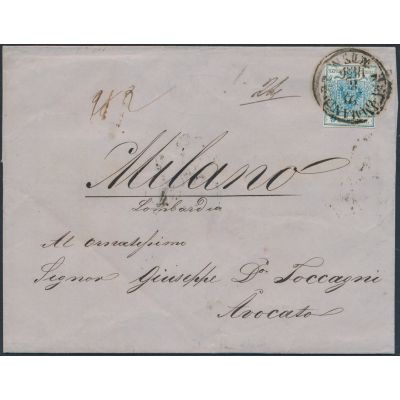 Milano
Lombardia
Al ornatissimo
Signor Giuseppe Dr. Toccagni
Avocato